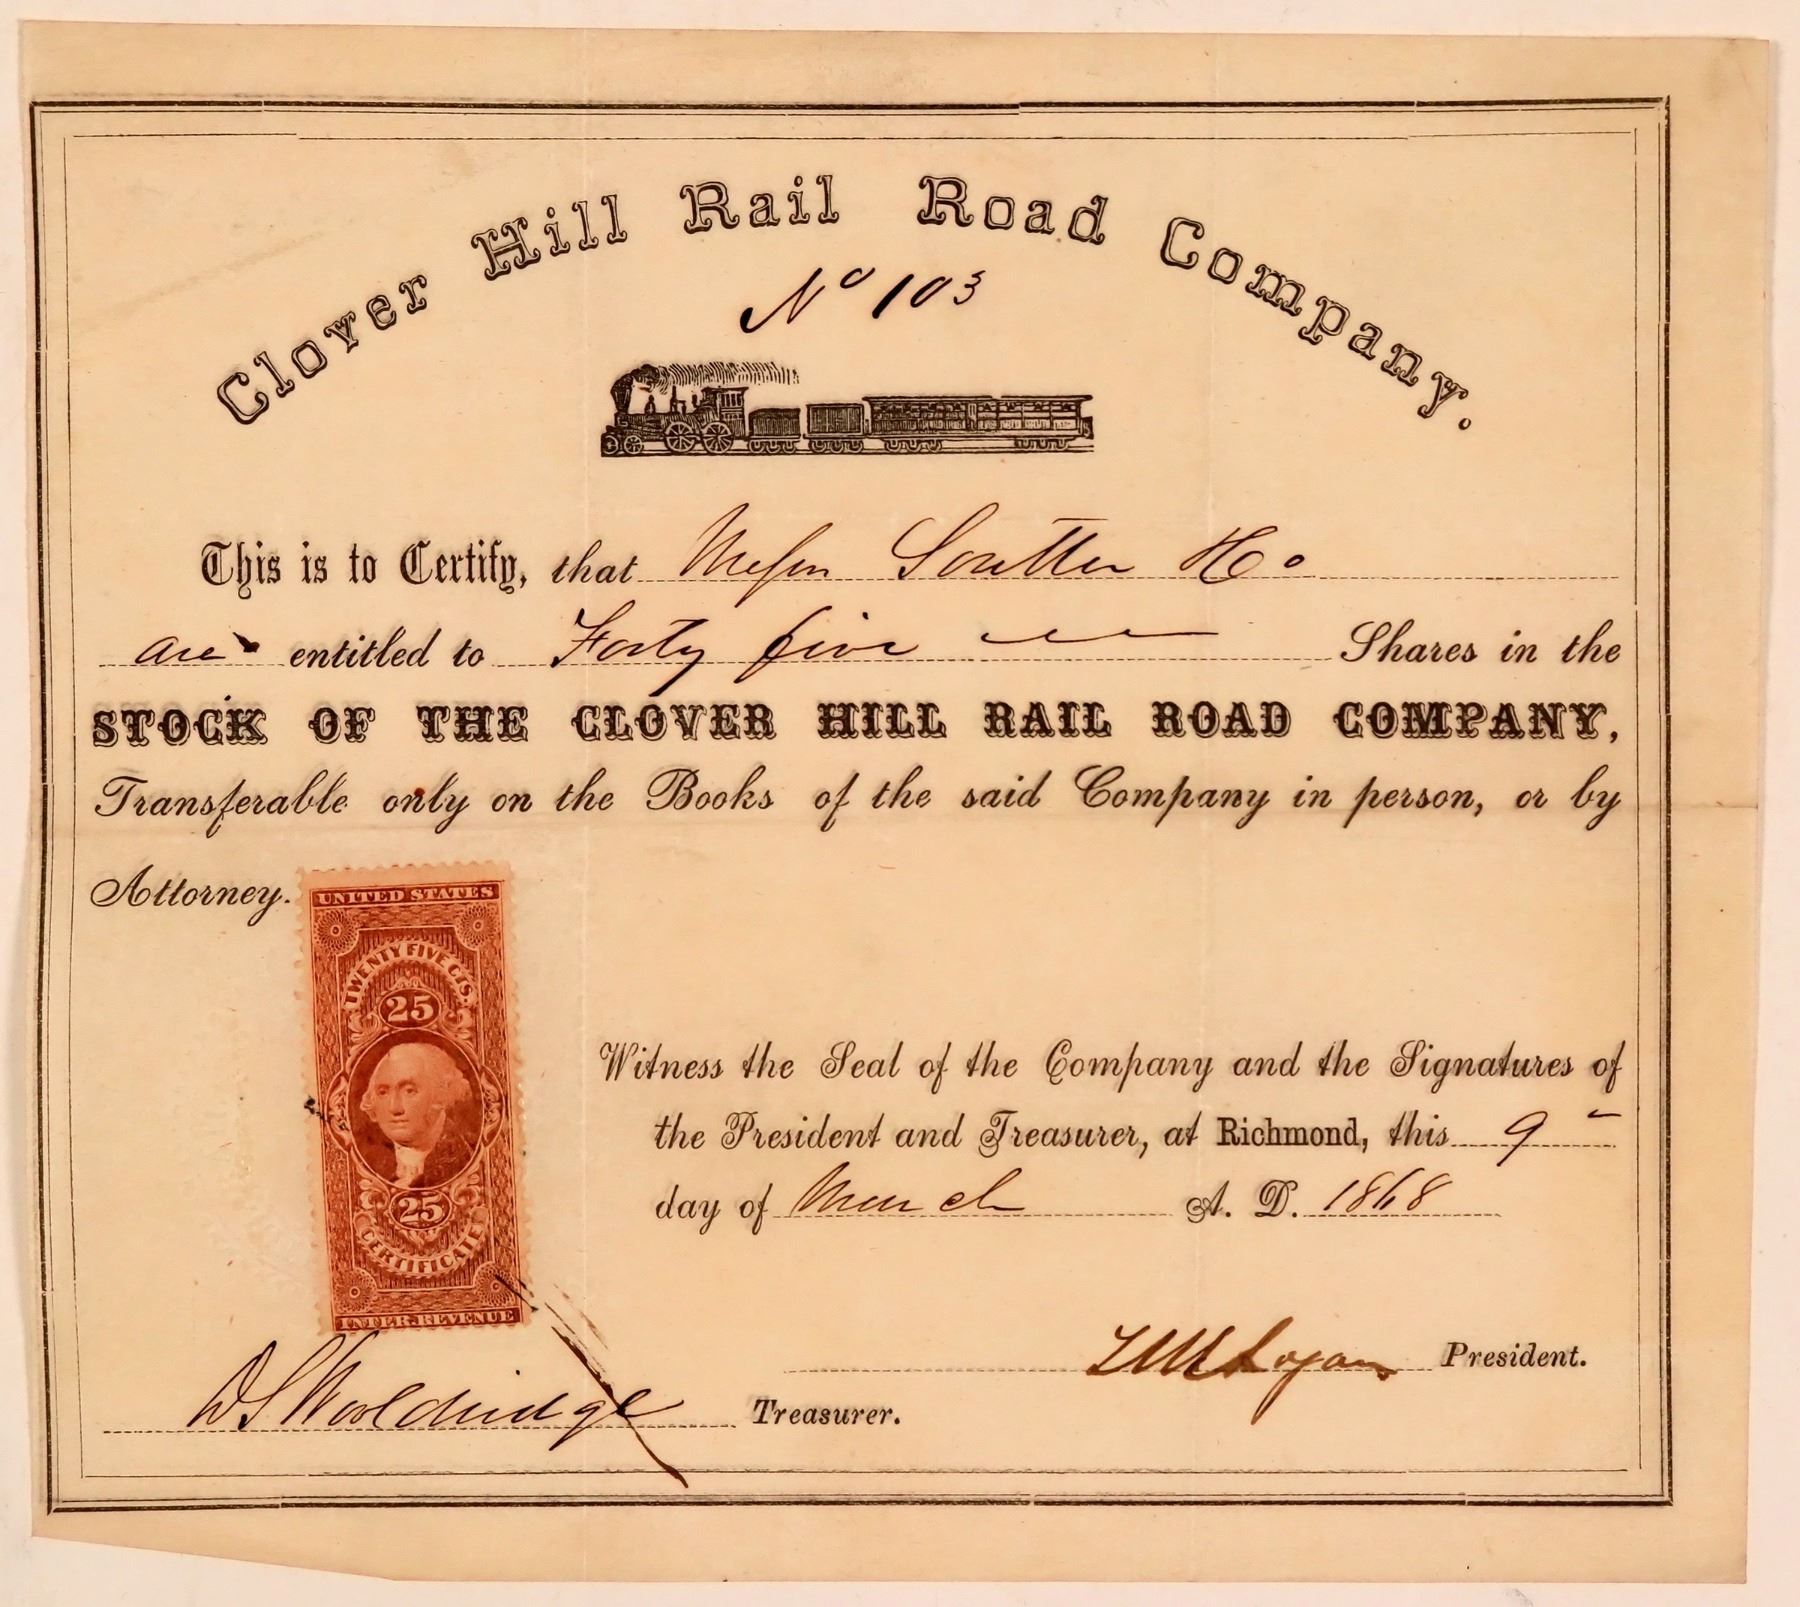 Clover Hill Rail Road Company.
No 103
This is to Certify, that Messrs Soutter & Co
are entitled to Forty five Shares in the
STOCK OF THE CLOVER HILL RAIL ROAD COMPANY,
Transferable only on the Books of the said Company in person, or by
Attorney.
UNITED STATES
TWENTY FIVE CTS.
25
25
CERTIFICATE
INTER. REVENUE
Witness the Seal of the Company and the Signatures of
the President and Treasurer, at Richmond, this 9
day of March A. D. 1868
TM Logan President.
DS Wooldridge Treasurer.